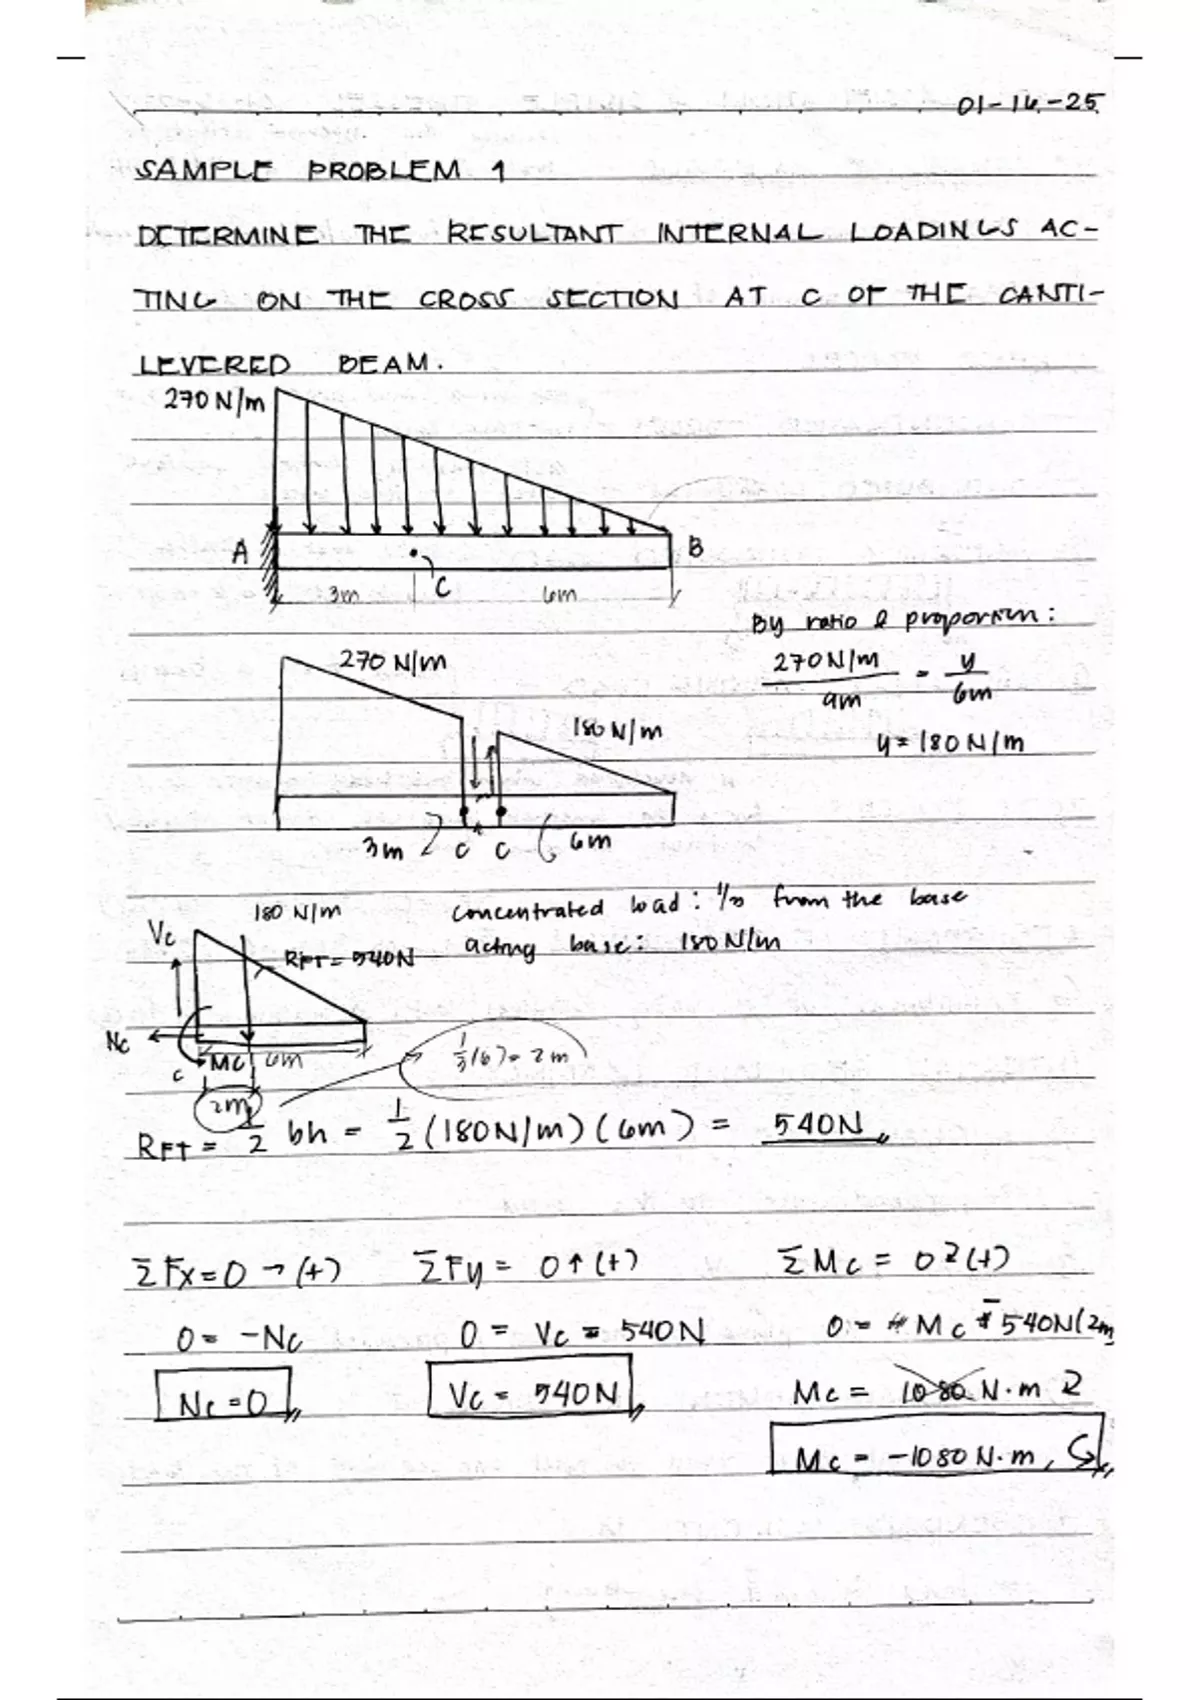 01-16-25
SAMPLE PROBLEM 1
DETERMINE THE RESULTANT INTERNAL LOADINGS AC-
TING ON THE CROSS SECTION AT C OF THE CANTI-
LEVERED BEAM.
270 N/m
A
B
C
3m
6m
By ratio & proportion:
270 N/m / 9m = y / 6m
y = 180 N/m
270 N/m
180 N/m
3m
C
C
6m
180 N/m
Vc
RFT = 540N
Nc
C
Mc
6m
2m
Concentrated load: 1/3 from the base
acting base: 180 N/m
1/3 (6) = 2m
RFT = 1/2 bh = 1/2 (180N/m)(6m) = 540N
ΣFx = 0 → (+)
0 = -Nc
Nc = 0
ΣFy = 0 ↑ (+)
0 = Vc - 540N
Vc = 540N
ΣMc = 0 ⤵ (+)
0 = Mc - 540N(2m
Mc = 1080 N·m ⤵
Mc = -1080 N·m,